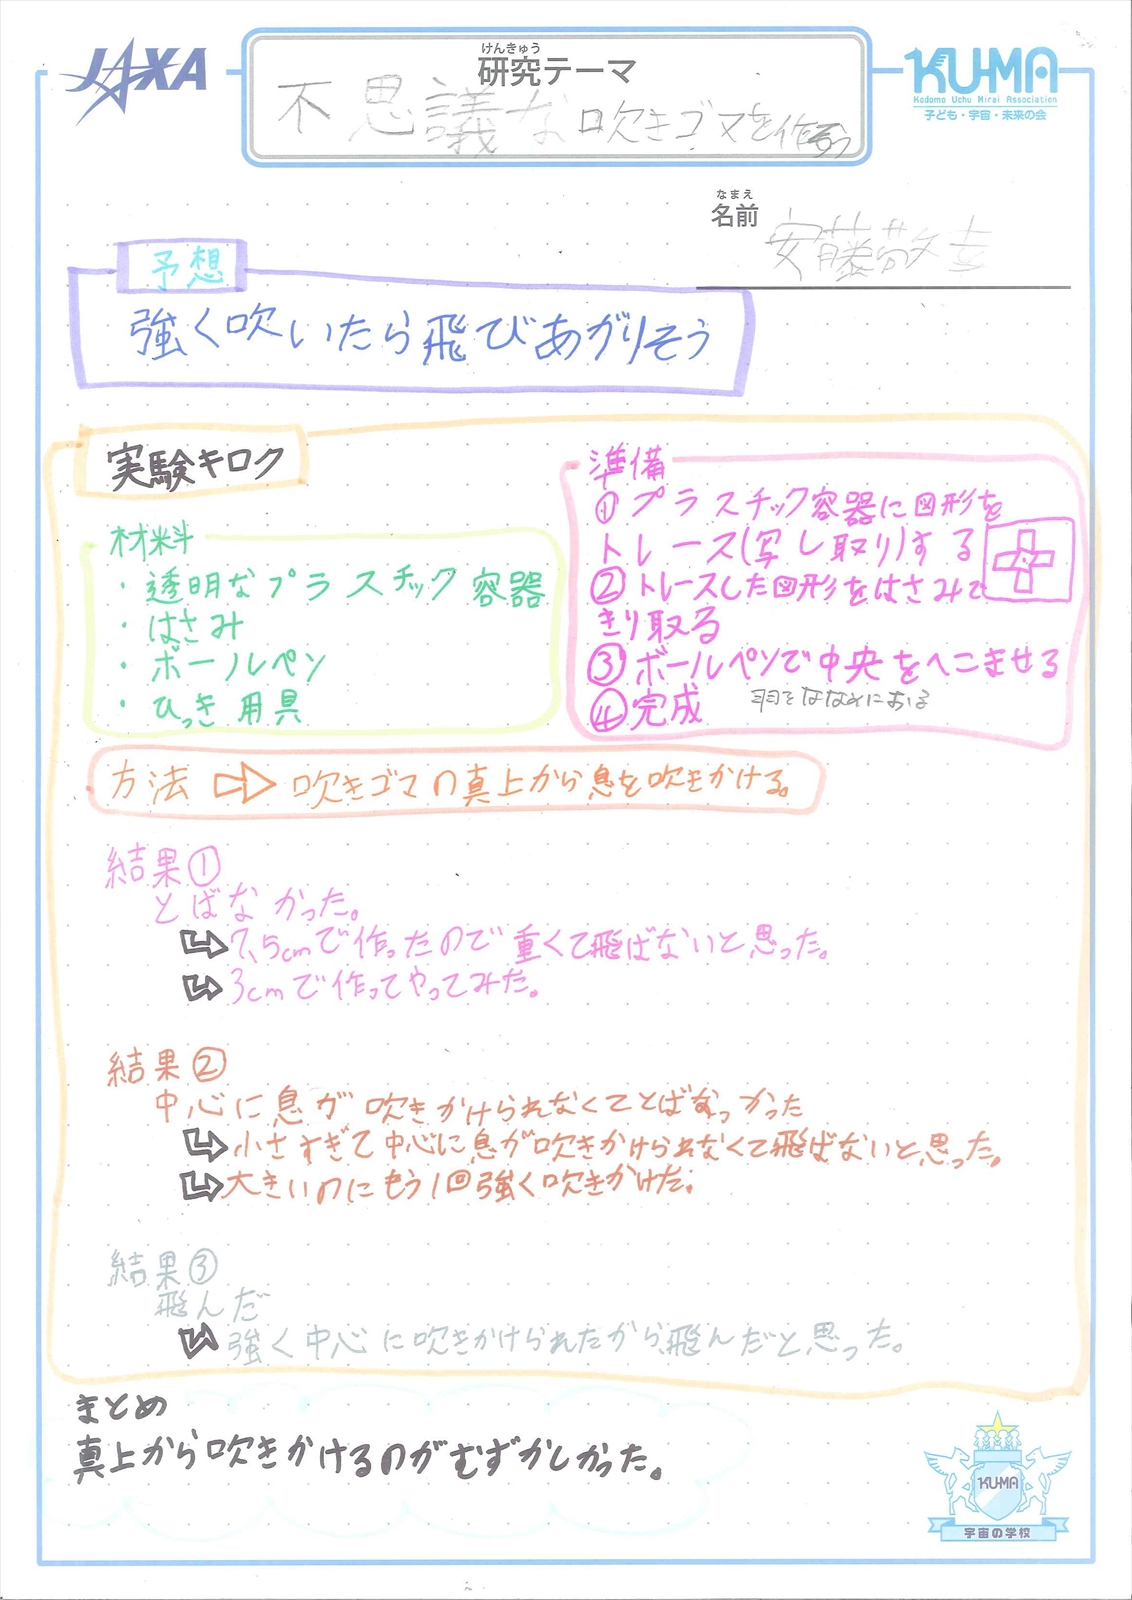 JAXA
けんきゅう
研究テーマ
不思議な吹きゴマを作ろう
KU-MA
Kodomo Uchu Mirai Association
子ども・宇宙・未来の会
なまえ
名前
安藤敬
予想
強く吹いたら飛びあがりそう
実験キロク
材料
・透明なプラスチック容器
・はさみ
・ボールペン
・ひっき用具
準備
①プラスチック容器に図形を
トレース(写し取り)する
②トレースした図形をはさみで
きり取る
③ボールペンで中央をへこませる
④完成 羽をななめにおる
方法 ⇨ 吹きゴマの真上から息を吹きかける。
結果①
とばなかった。
↳7.5cmで作ったので重くて飛ばないと思った。
↳3cmで作ってやってみた。
結果②
中心に息が吹きかけられなくてとばなっかった
↳小さすぎて中心に息が吹きかけられなくて飛ばないと思った。
↳大きいのにもう1回強く吹きかけた。
結果③
飛んだ
↳強く中心に吹きかけられたから飛んだと思った。
まとめ
真上から吹きかけるのがむずかしかった。
KU-MA
宇宙の学校